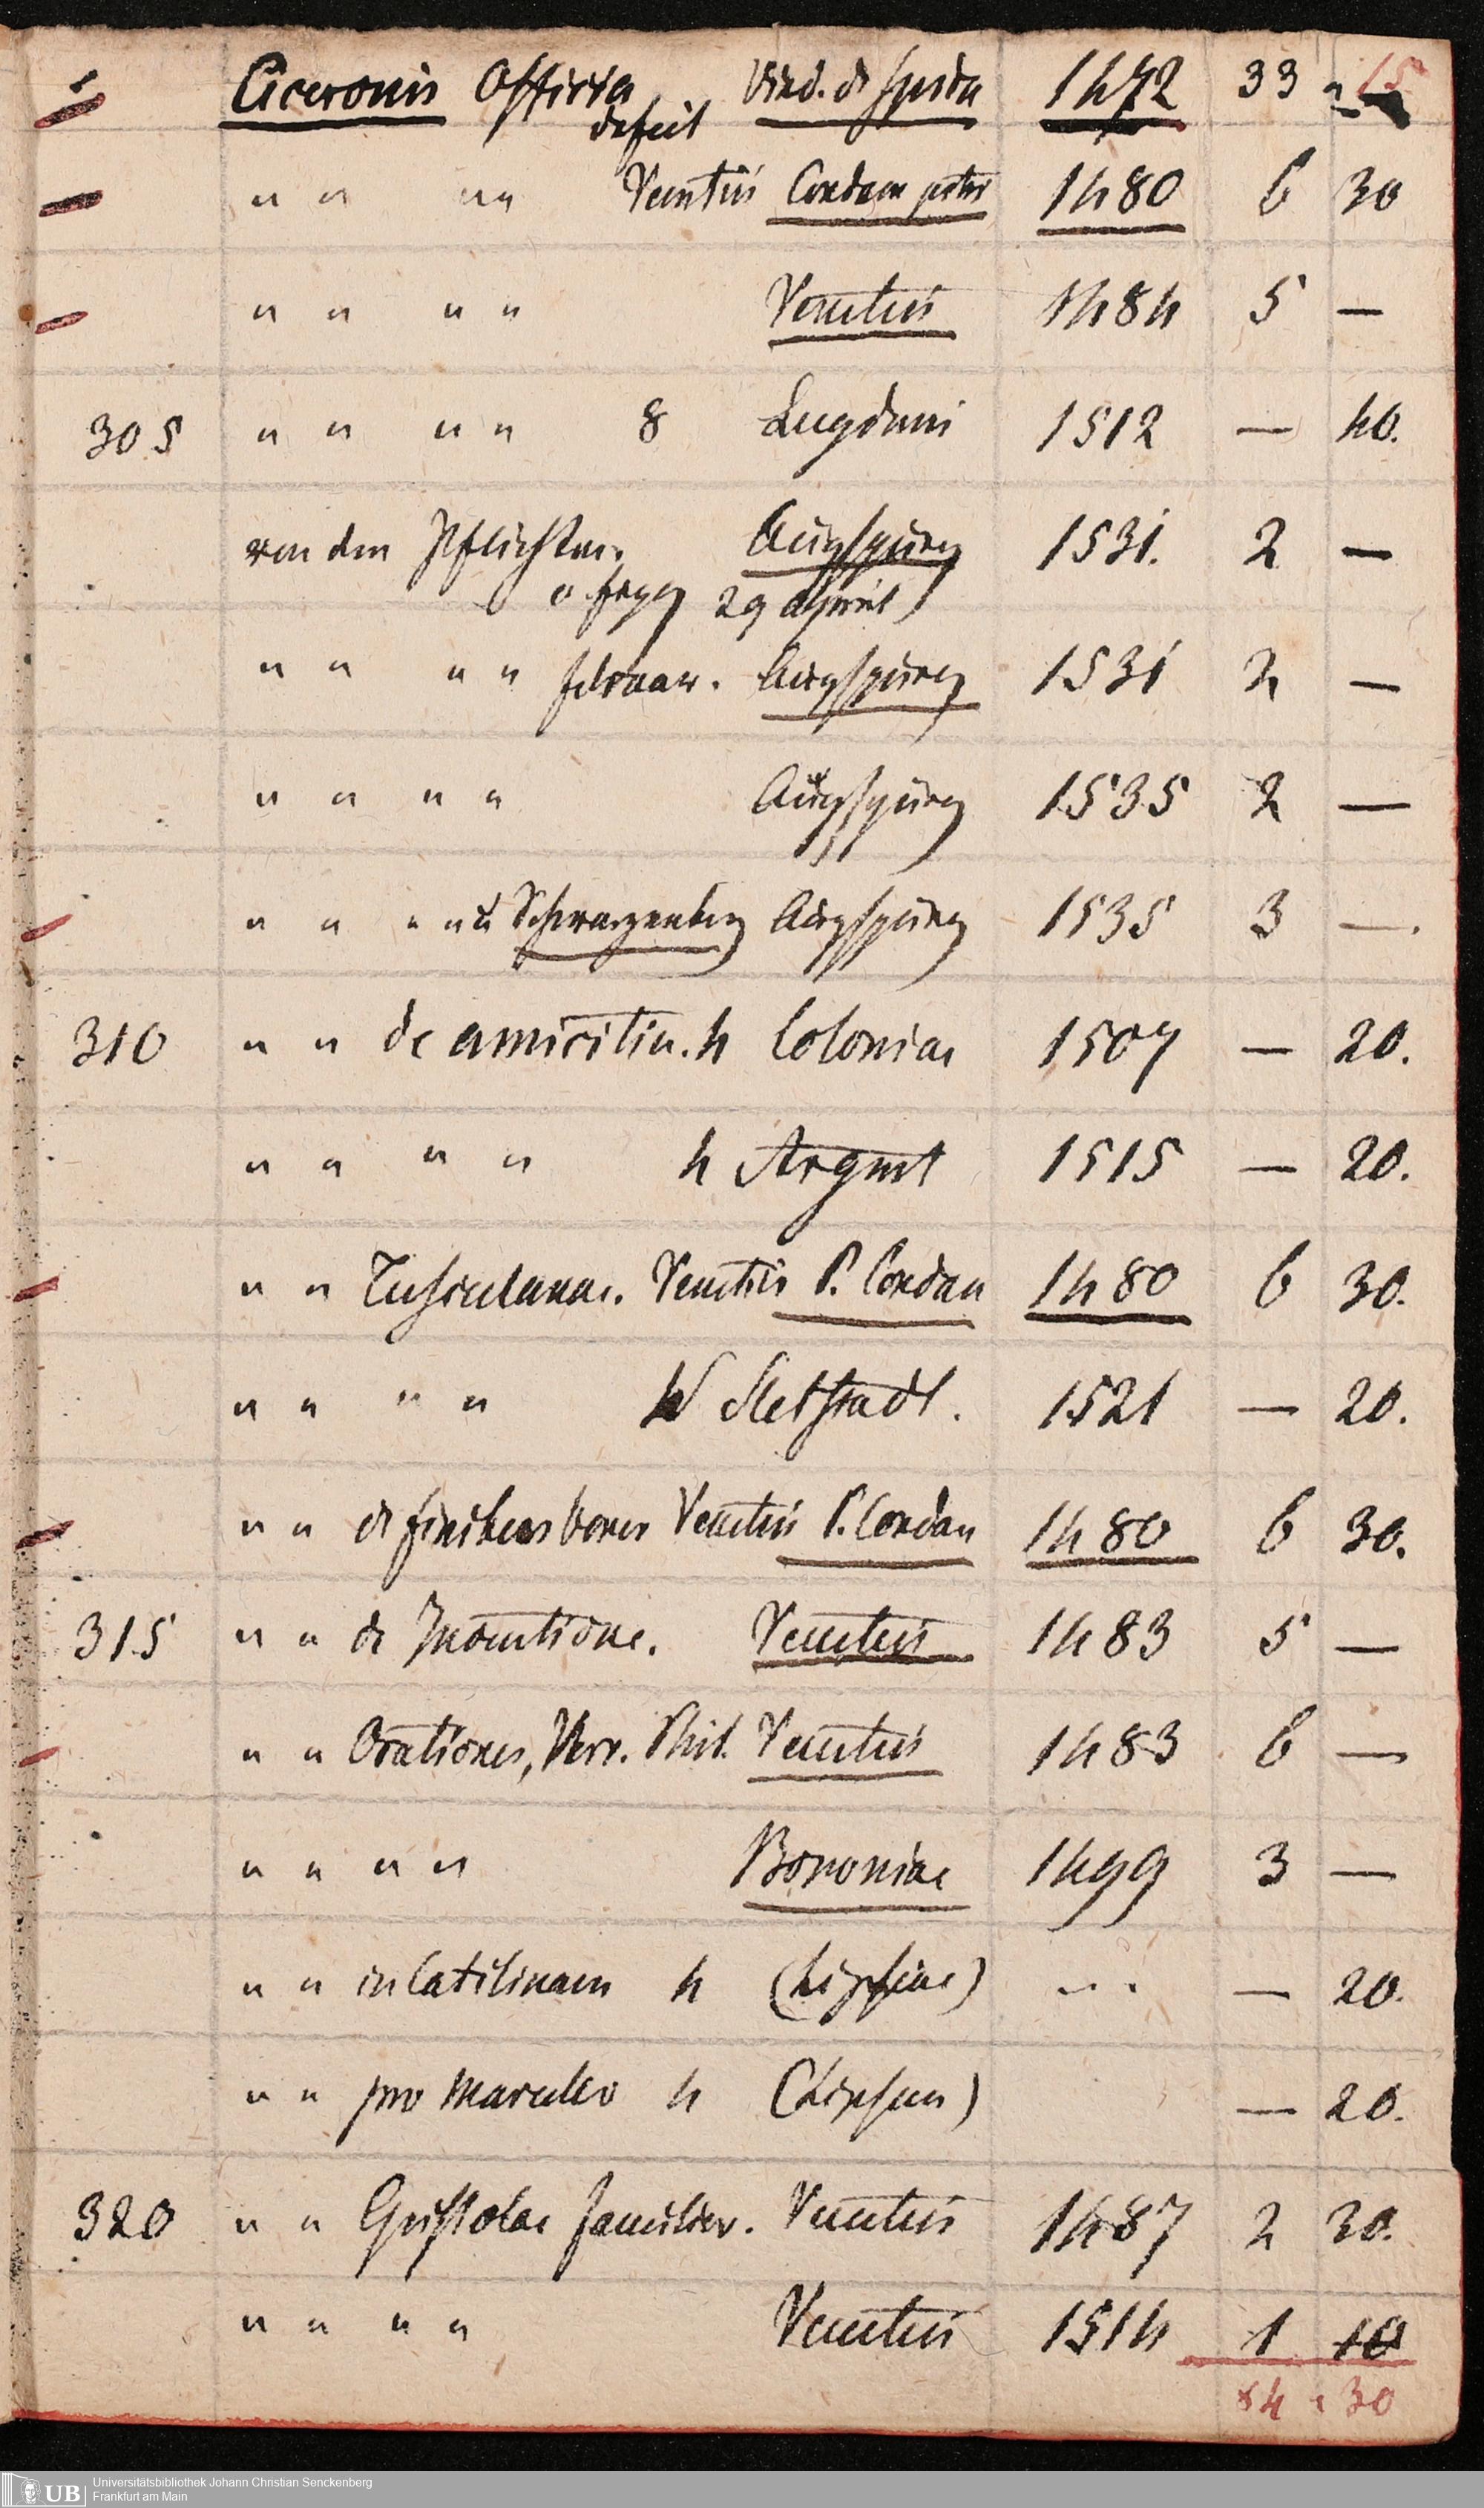 Ciceronis Officia Vind. d Spira 1472 33 " 15
defect
" " " " Venetiis Condam petri 1480 6 30
" " " " Venetiis 1484 5 —
305 " " " " 8 Lugduni 1512 — 40.
von den Pflichten. Augspurg 1531. 2 —
29 april
" " " " februar. Augspurg 1531 2 —
" " " " Augspurg 1535 2 —
" " " " u Schwarzenberg Augspurg 1535 3 —.
310 " " de amicitia. 4 Coloniae 1507 — 20.
" " " " 4 Argent 1515 — 20.
" " Tusculanae. Venetiis P. Condan 1480 6 30.
" " " " 4 Sletstadt. 1521 — 20.
" " de finibus bonor Venetiis P. Condan 1480 6 30.
315 " " de Inventione. Venetiis 1483 5 —
" " Orationes, Verr. Phil. Venetiis 1483 6 —
" " " " Bononiae 1499 3 —
" " in Catilinam 4 (Lipsiae) — 20.
" " pro Marcello 4 (Lipsiae) — 20.
320 " " Epistolae familiar. Venetiis 1487 2 30.
" " " " Venetiis 1514 1 10
84 " 30
UB Universitätsbibliothek Johann Christian Senckenberg
Frankfurt am Main